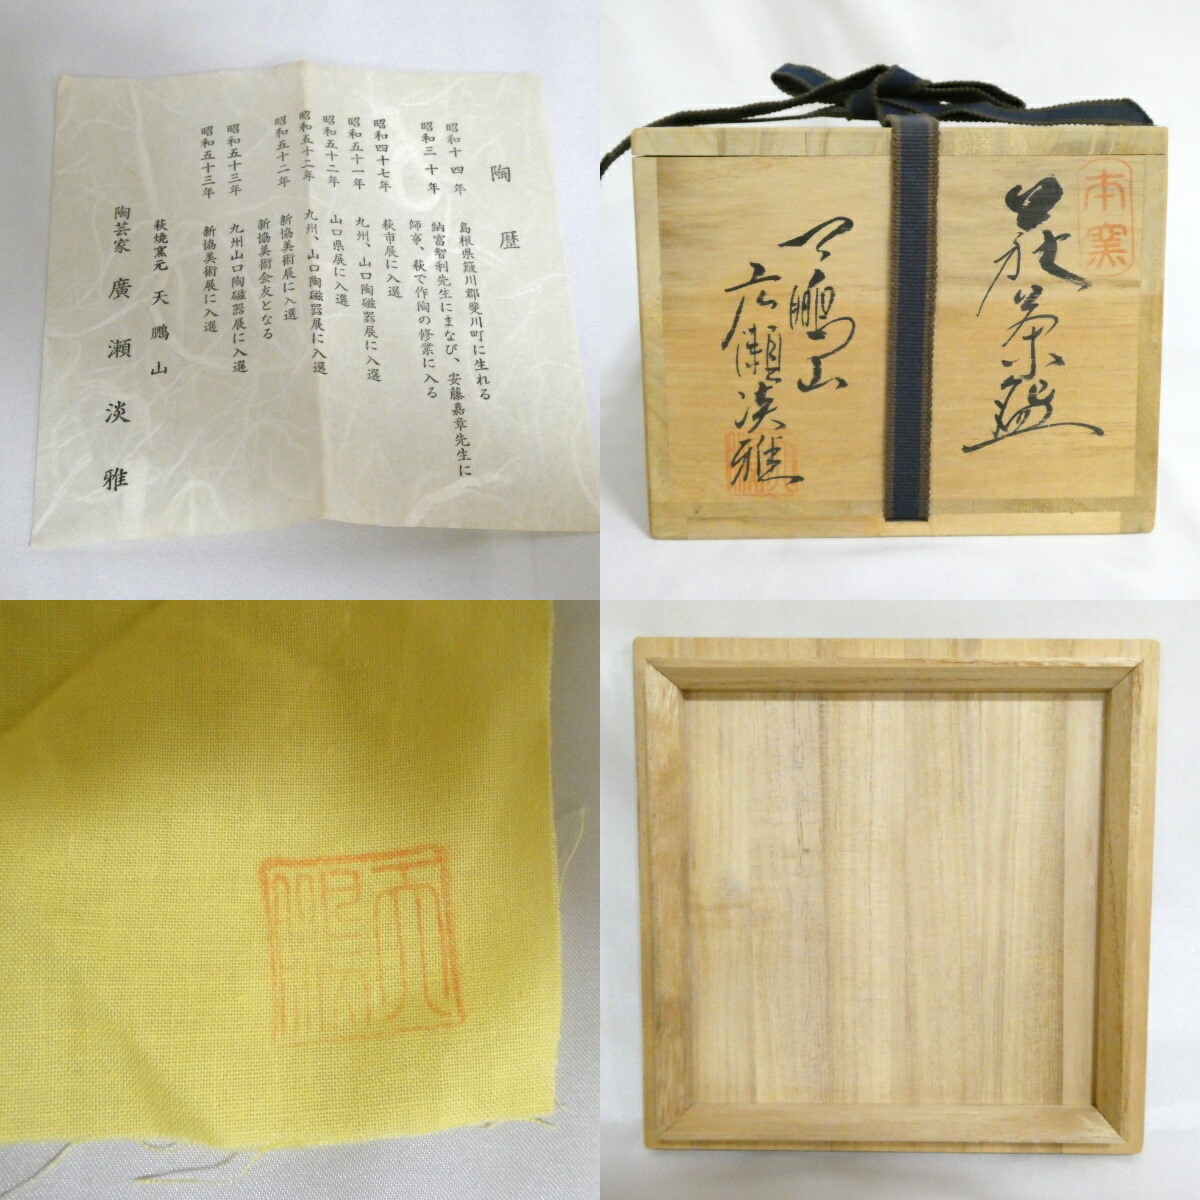 陶歴
昭和十四年 島根県簸川郡斐川町に生れる
昭和三十年 納富智利先生にまなび、安藤嘉章先生に
師事、萩で作陶の修業に入る
昭和四十七年 萩市展に入選
昭和五十一年 九州、山口陶磁器展に入選
昭和五十二年 山口県展に入選
昭和五十二年 九州、山口陶磁器展に入選
昭和五十二年 新協美術展に入選
新協美術会友となる
昭和五十三年 九州山口陶磁器展に入選
昭和五十三年 新協美術展に入選
萩焼窯元 天鵬山
陶芸家 廣瀬淡雅
本窯
萩茶盌
天鵬山
広瀬淡雅
天鵬